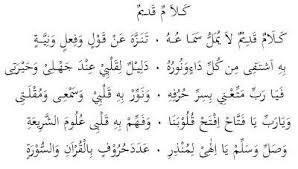 كَلَا مٌ قَدِيْمٌ
كَلَامٌ قَدِيْمٌ لَا يُمَلُّ سَمَا عُـهُ ۰ تَنَزَّهَ عَنْ قَوْلٍ وَفِعْلٍ وَنِيَّةٍ
بِهِ اَشْتَفِى مِنْ كُلِّ دَاءٍ وَنُوْرُهُ ۰ دَلِيْلٌ لِقَلْبِيْ عِنْدَ جَهْلِيْ وَحَيْرَتِى
فَيَا رَبِّ مَتِّعْنِي بِسِرِّ حُرُوْفِهِ ۰ وَنَوِّرْ بِهِ قَلْبِيْ وَسَمْعِى وَمُقْلَتِى
وَيَارَبِّ يَا فَتَّاحُ اِفْتَحْ قُلُوْبَنَا ۰ وَفَهِّمْ بِهِ قَلْبِيْ عُلُوْمَ الشَّرِيْعَةِ
وَصَلِّ وَسَلِّمْ يَا اِلٰهِيْ لِمُنْذِرٍ ۰ عَدَدَ حُرُوْفٍ بِالْقُرْاٰنِ وَالسُّوْرَةِ